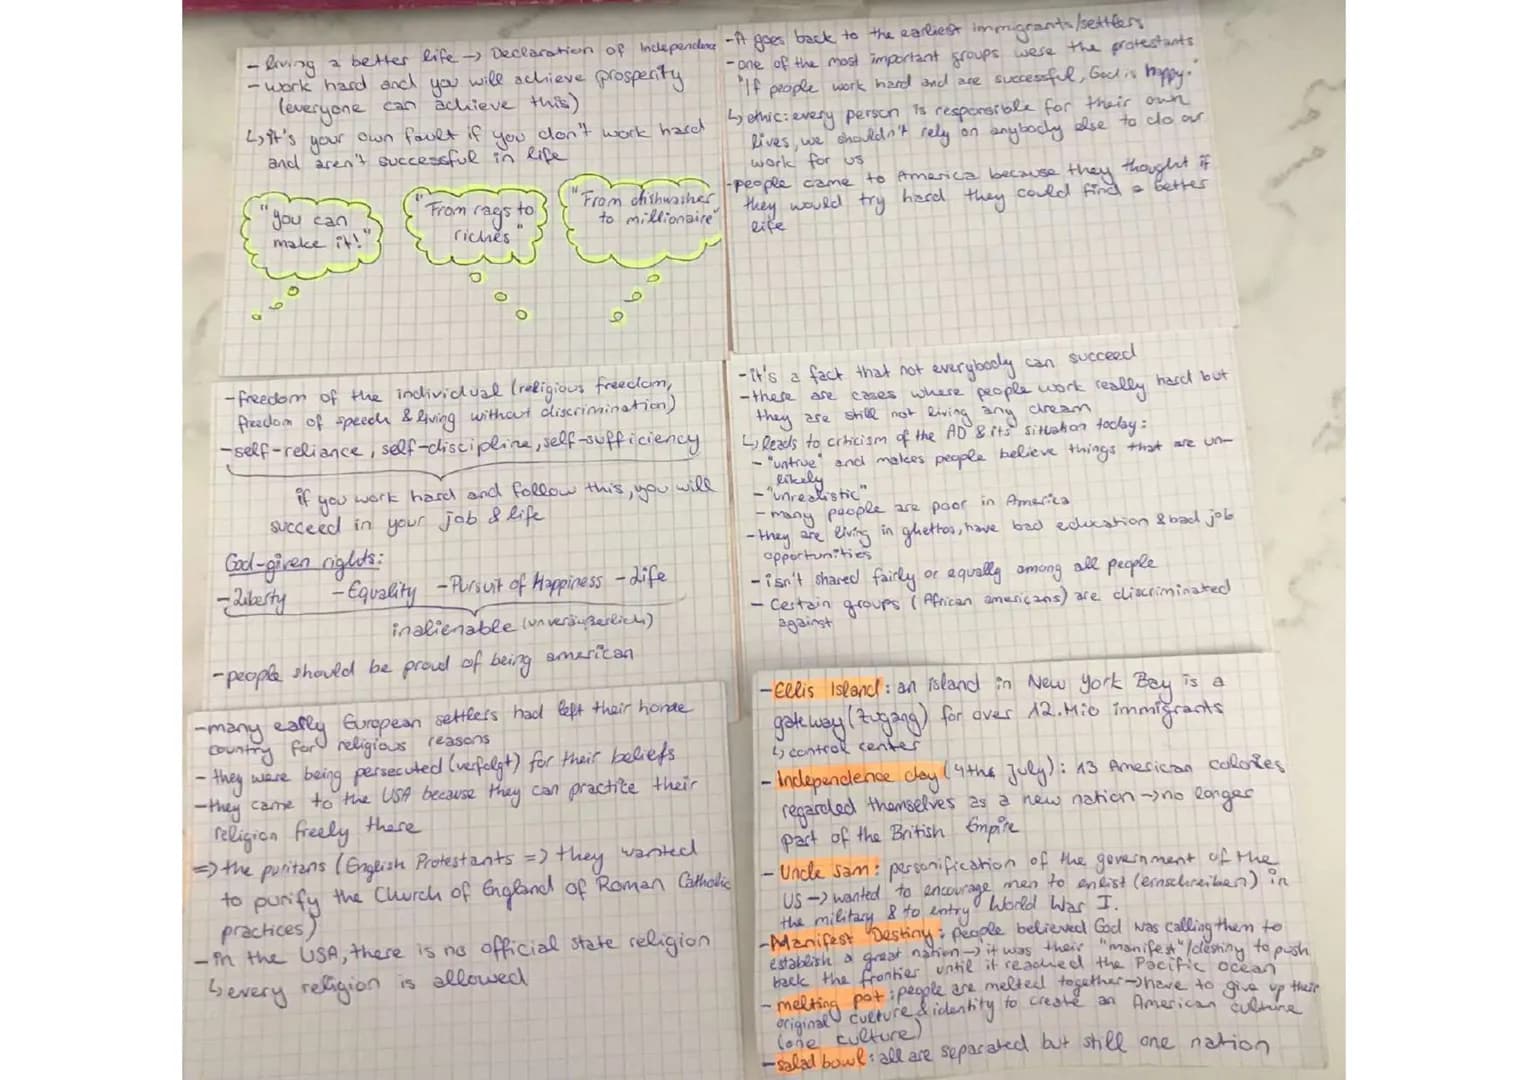 - living a better life -> Declaration of Independence
- work hard and you will achieve prosperity
(everyone can achieve this)
↳ it's your own fault if you don't work hard
and aren't successful in life
"you can
make it!"
"From rags to
riches"
"From dishwasher
to millionaire"
- it goes back to the earliest immigrants/settlers
- one of the most important groups were the protestants
"If people work hard and are successful, God is happy."
↳ ethic: every person is responsible for their own
lives, we shouldn't rely on anybody else to do our
work for us
- people came to America because they thought if
they would try hard they could find a better
life
- freedom of the individual (religious freedom,
freedom of speech & living without discrimination)
- self-reliance, self-discipline, self-sufficiency
if you work hard and follow this, you will
succeed in your job & life
God-given rights:
- Liberty - Equality - Pursuit of Happiness - Life
inalienable (unveräußerlich)
- people should be proud of being american
- it's a fact that not everybody can succeed
- there are cases where people work really hard but
they are still not living any dream
↳ leads to criticism of the AD & its situation today:
- "untrue" and makes people believe things that are un-
likely
- "unrealistic"
- many poople are poor in America
- they are living in ghettos, have bad education & bad job
opportunities
- isn't shared fairly or equally among all people
- Certain groups (African americans) are discriminated
against
- many early European settlers had left their home
country for religious reasons
- they were being persecuted (verfolgt) for their beliefs
- they came to the USA because they can practice their
religion freely there
=> the puritans (English Protestants => they wanted
to purify the Church of England of Roman Catholic
practices)
- in the USA, there is no official state religion
↳ every religion is allowed
- Ellis Island: an island in New York Bay is a
gateway (Zugang) for over 12. Mio immigrants
↳ control center
- Independence day (4ths July): 13 American colonies
regarded themselves as a new nation -> no longer
part of the British Empire
- Uncle Sam: personification of the government of the
US -> wanted to encourage men to enlist (einschreiben) in
the military & to entry World War I.
- Manifest Destiny: people believed God was calling them to
establish a great nation -> it was their "manifest"/destiny to push
back the frontier until it reached the Pacific ocean
- melting pot: people are melted together -> have to give up their
original culture & identity to create an American culture
(one culture)
- salad bowl: all are separated but still one nation